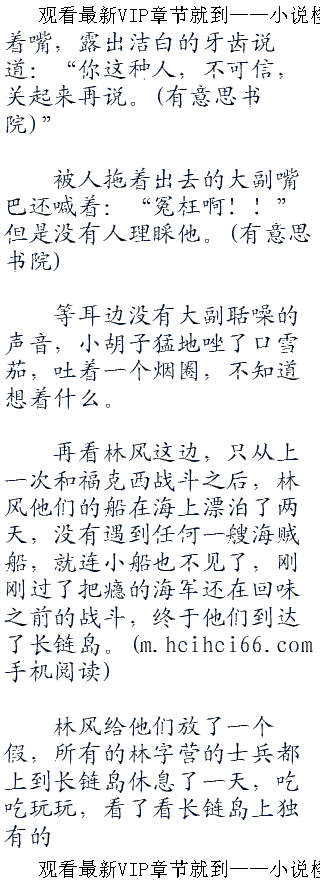 观看最新VIP章节就到——小说
着嘴，露出洁白的牙齿说
道：“你这种人，不可信，
关起来再说。(有意思书
院)”
被人拖着出去的大副嘴
巴还喊着：“冤枉啊！！”
但是没有人理睬他。(有意思
书院)
等耳边没有大副聒噪的
声音，小胡子猛地唑了口雪
茄，吐着一个烟圈，不知道
想着什么。
再看林风这边，只从上
一次和福克西战斗之后，林
风他们的船在海上漂泊了两
天，没有遇到任何一艘海贼
船，就连小船也不见了，刚
刚过了把瘾的海军还在回味
之前的战斗，终于他们到达
了长链岛。(m.hcihci66.com
手机阅读)
林风给他们放了一个
假，所有的林字营的士兵都
上到长链岛休息了一天，吃
吃玩玩，看了看长链岛上独
有的
观看最新VIP章节就到——小说